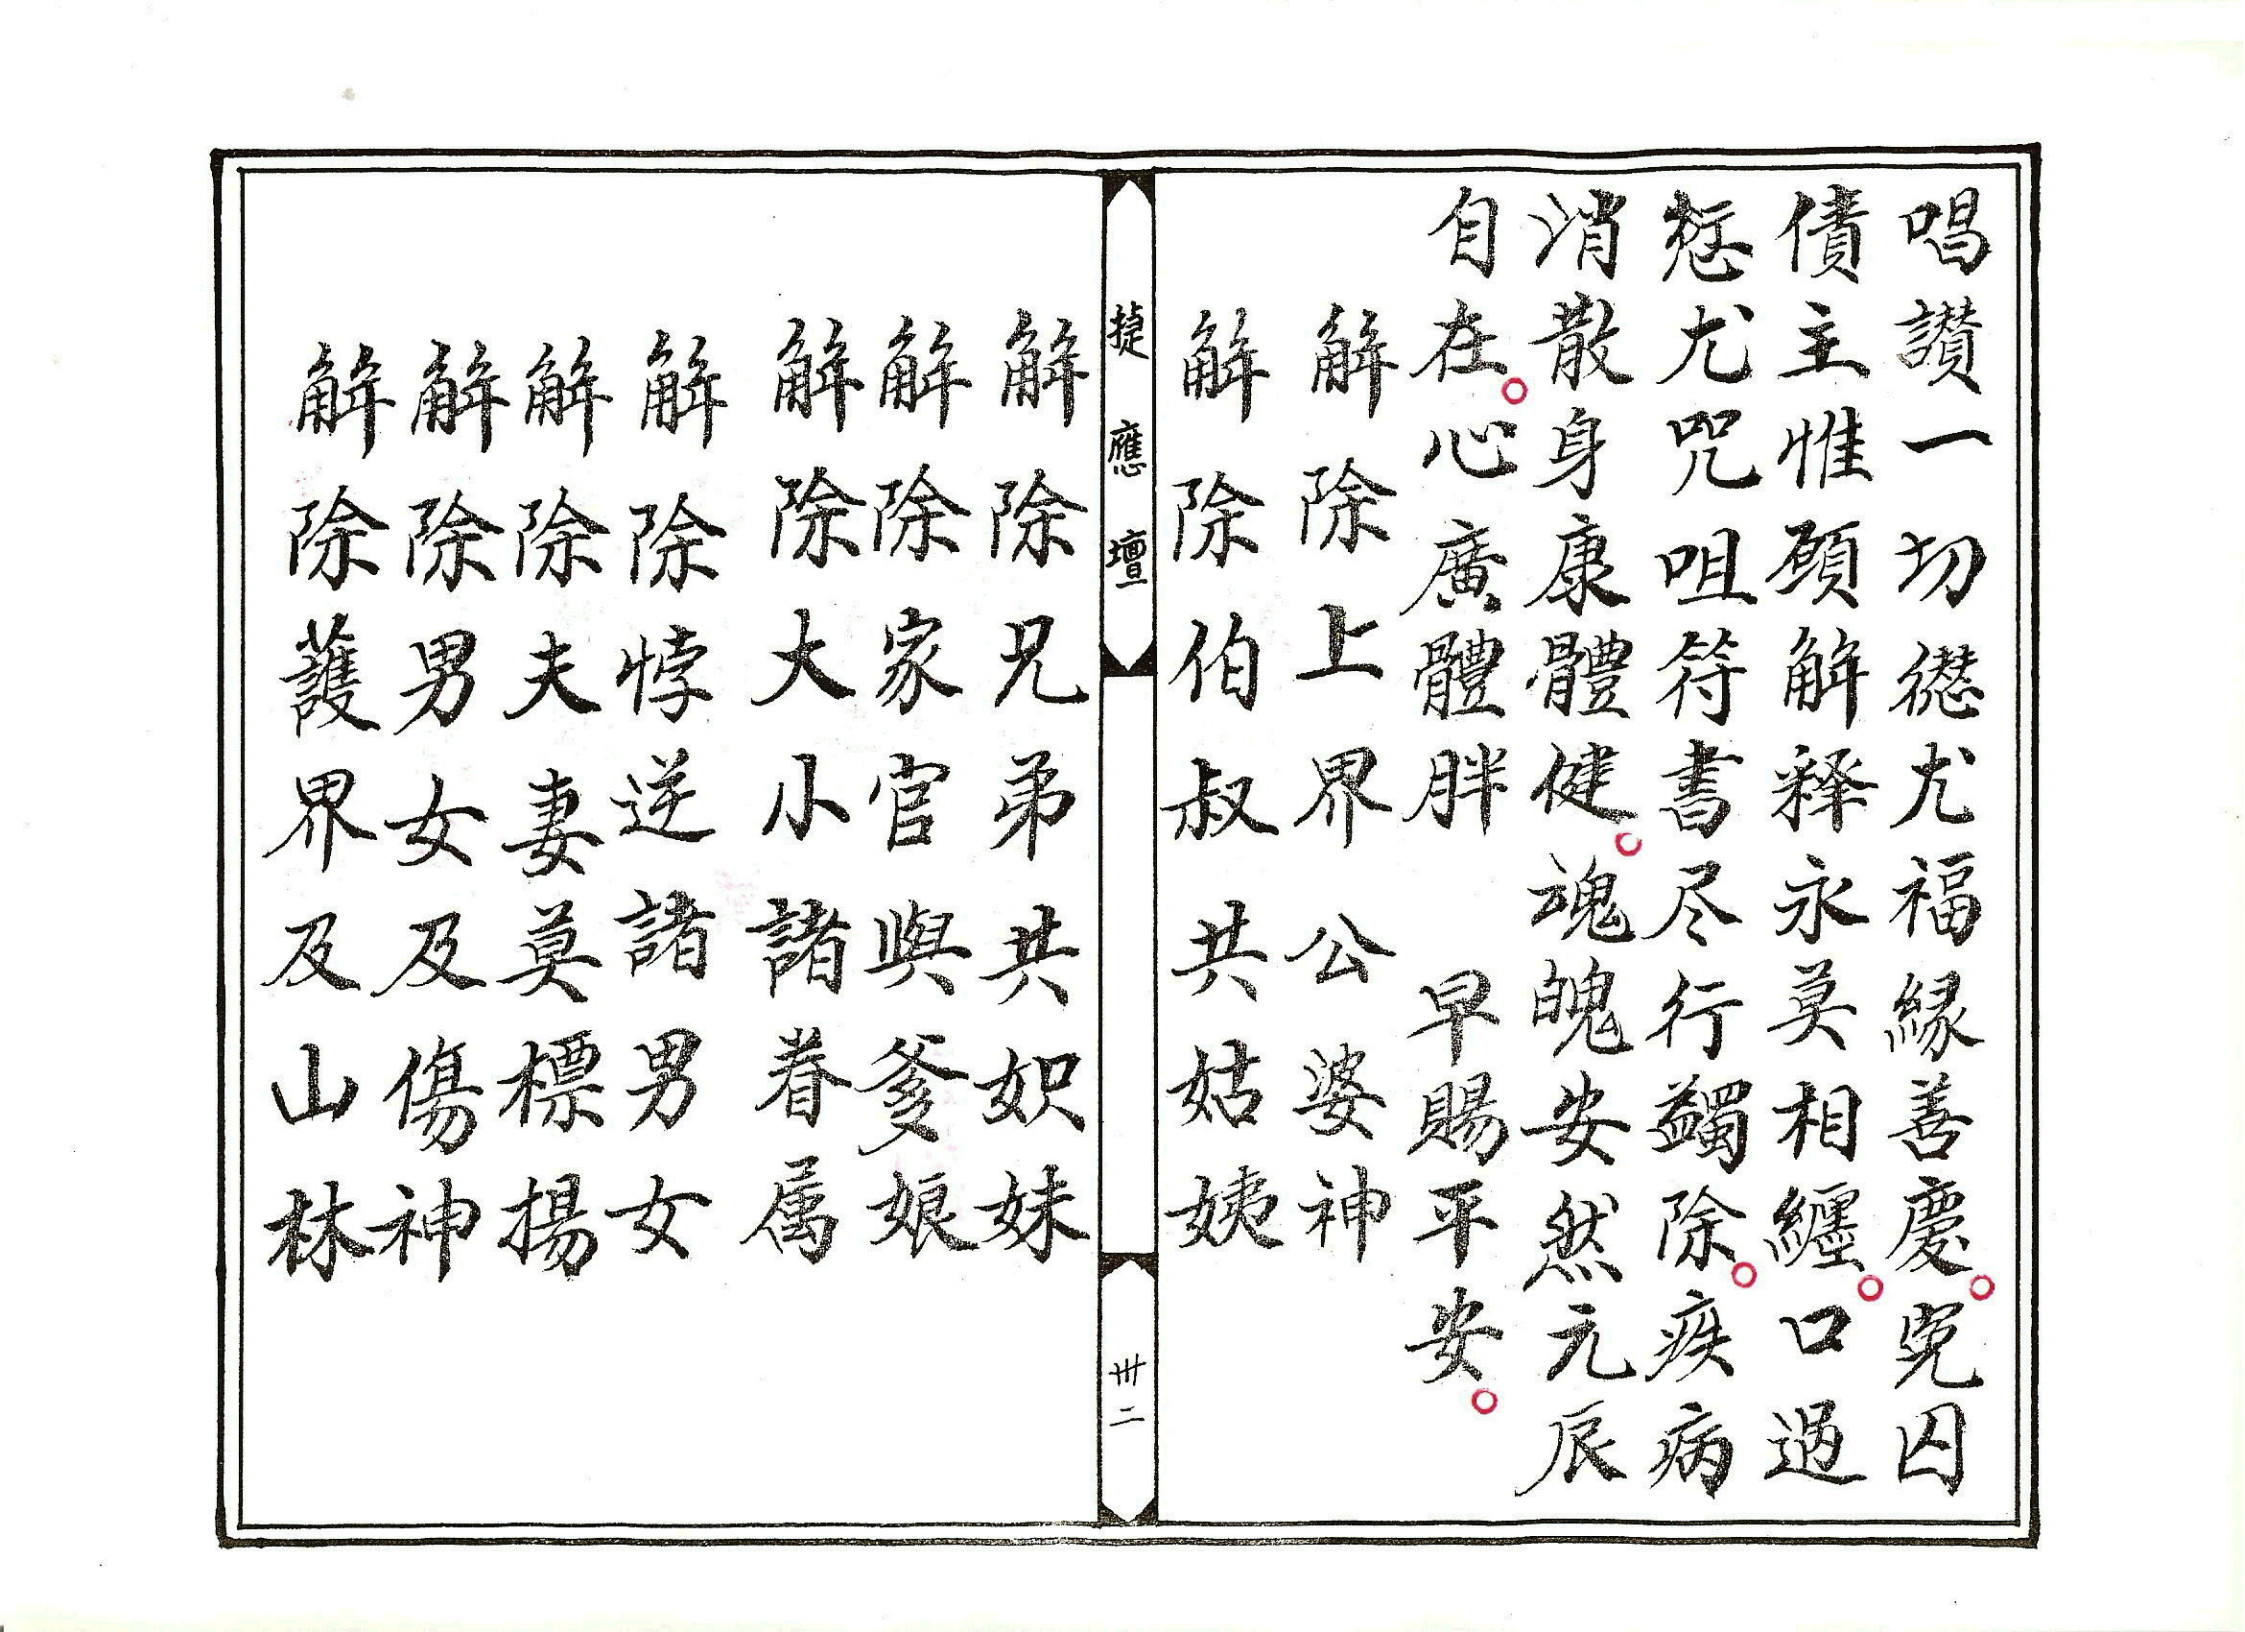 唱讃一切愆尤福縁善慶。寃囚
債主惟願解釋永莫相纏。口過
愆尤咒咀符書尽行蠲除。疾病
消散身康體健。魂魄安然元辰
自在。心廣體胖 早賜平安。
解除上界公婆神
解除伯叔共姑姨
捷應壇
卅二
解除兄弟共姐妹
解除家官與爹娘
解除大小諸眷属
解除悖逆諸男女
解除夫妻莫標揚
解除男女及傷神
解除護界及山林